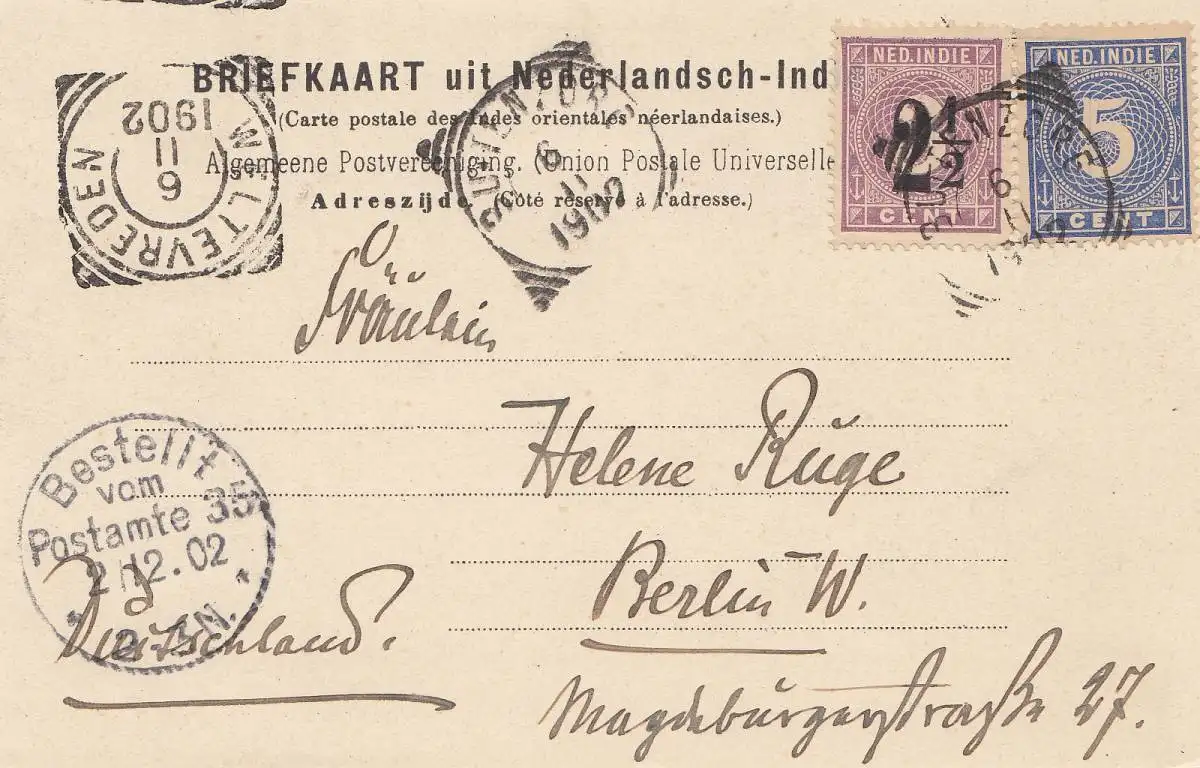 BRIEFKAART uit Nederlandsch-Ind
(Carte postale des Indes orientales néerlandaises.)
Algemeene Postvereeniging. (Union Postale Universelle
Adreszijde. (Côté réservé à l'adresse.)
NED. INDIE
2½
CENT
NED. INDIE
5
CENT
WELTEVREDEN
6
11
1902
BUITENZORG
6
11
1902
BUITENZORG
6
11
1902
Fräulein
Helene Ruge
Berlin W.
Magdeburgerstraße 27.
Deutschland.
Bestellt
vom
Postamte 35
2.12.02
N.